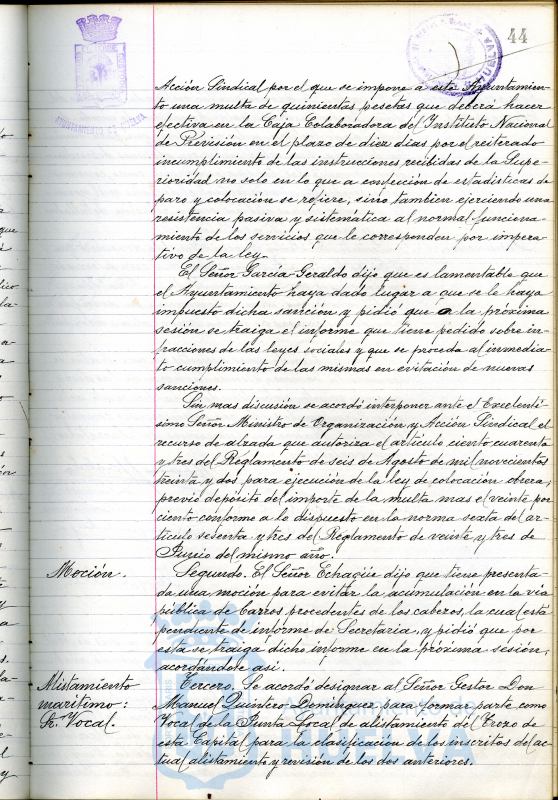 44
AYUNTAMIENTO DE HUELVA
Acción Sindical por el que se impone a este Ayuntamien-
to una multa de quinientas pesetas que deberá hacer
efectiva en la Caja Colaboradora del Instituto Nacional
de Previsión en el plazo de diez dias por el reiterado
incumplimiento de las instrucciones recibidas de la Supe-
rioridad no solo en lo que a confección de estadísticas de
paro y colocación se refiere, sino tambien ejerciendo una
resistencia pasiva y sistemática al normal funciona-
miento de los servicios que le corresponden por impera-
tivo de la ley.
El Señor García Geraldo dijo que es lamentable que
el Ayuntamiento haya dado lugar a que se le haya
impuesto dicha sanción y pidió que a la próxima
sesión se traiga el informe que tiene pedido sobre in-
fracciones de las leyes sociales y que se proceda al inmedia-
to cumplimiento de las mismas en evitación de nuevas
sanciones.
Sin mas discusión se acordó interponer ante el Excelentí-
simo Señor Ministro de Organización y Acción Sindical el
recurso de alzada que autoriza el artículo ciento cuarenta
y tres del Reglamento de seis de Agosto de mil novecientos
treinta y dos para ejecución de la ley de colocación obrera,
previo depósito del importe de la multa mas el veinte por
ciento conforme a lo dispuesto en la norma sexta del ar-
tículo sesenta y tres del Reglamento de veinte y tres de
Junio del mismo año.
Moción.
Segundo. El Señor Echagüe dijo que tiene presenta-
da una moción para evitar la acumulación en la via
pública de barros procedentes de los cabezos, la cual está
pendiente de informe de Secretaria, y pidió que por
esta se traiga dicho informe en la próxima sesión,
acordándose asi.
Alistamiento
marítimo:
Vocal.
Tercero. Se acordó designar al Señor Gestor Don
Manuel Quintero Dominguez para formar parte como
Vocal de la Junta Local de alistamiento del Trozo de
esta Capital para la clasificación de los inscritos del ac-
tual alistamiento y revisión de los dos anteriores.
HUELVA